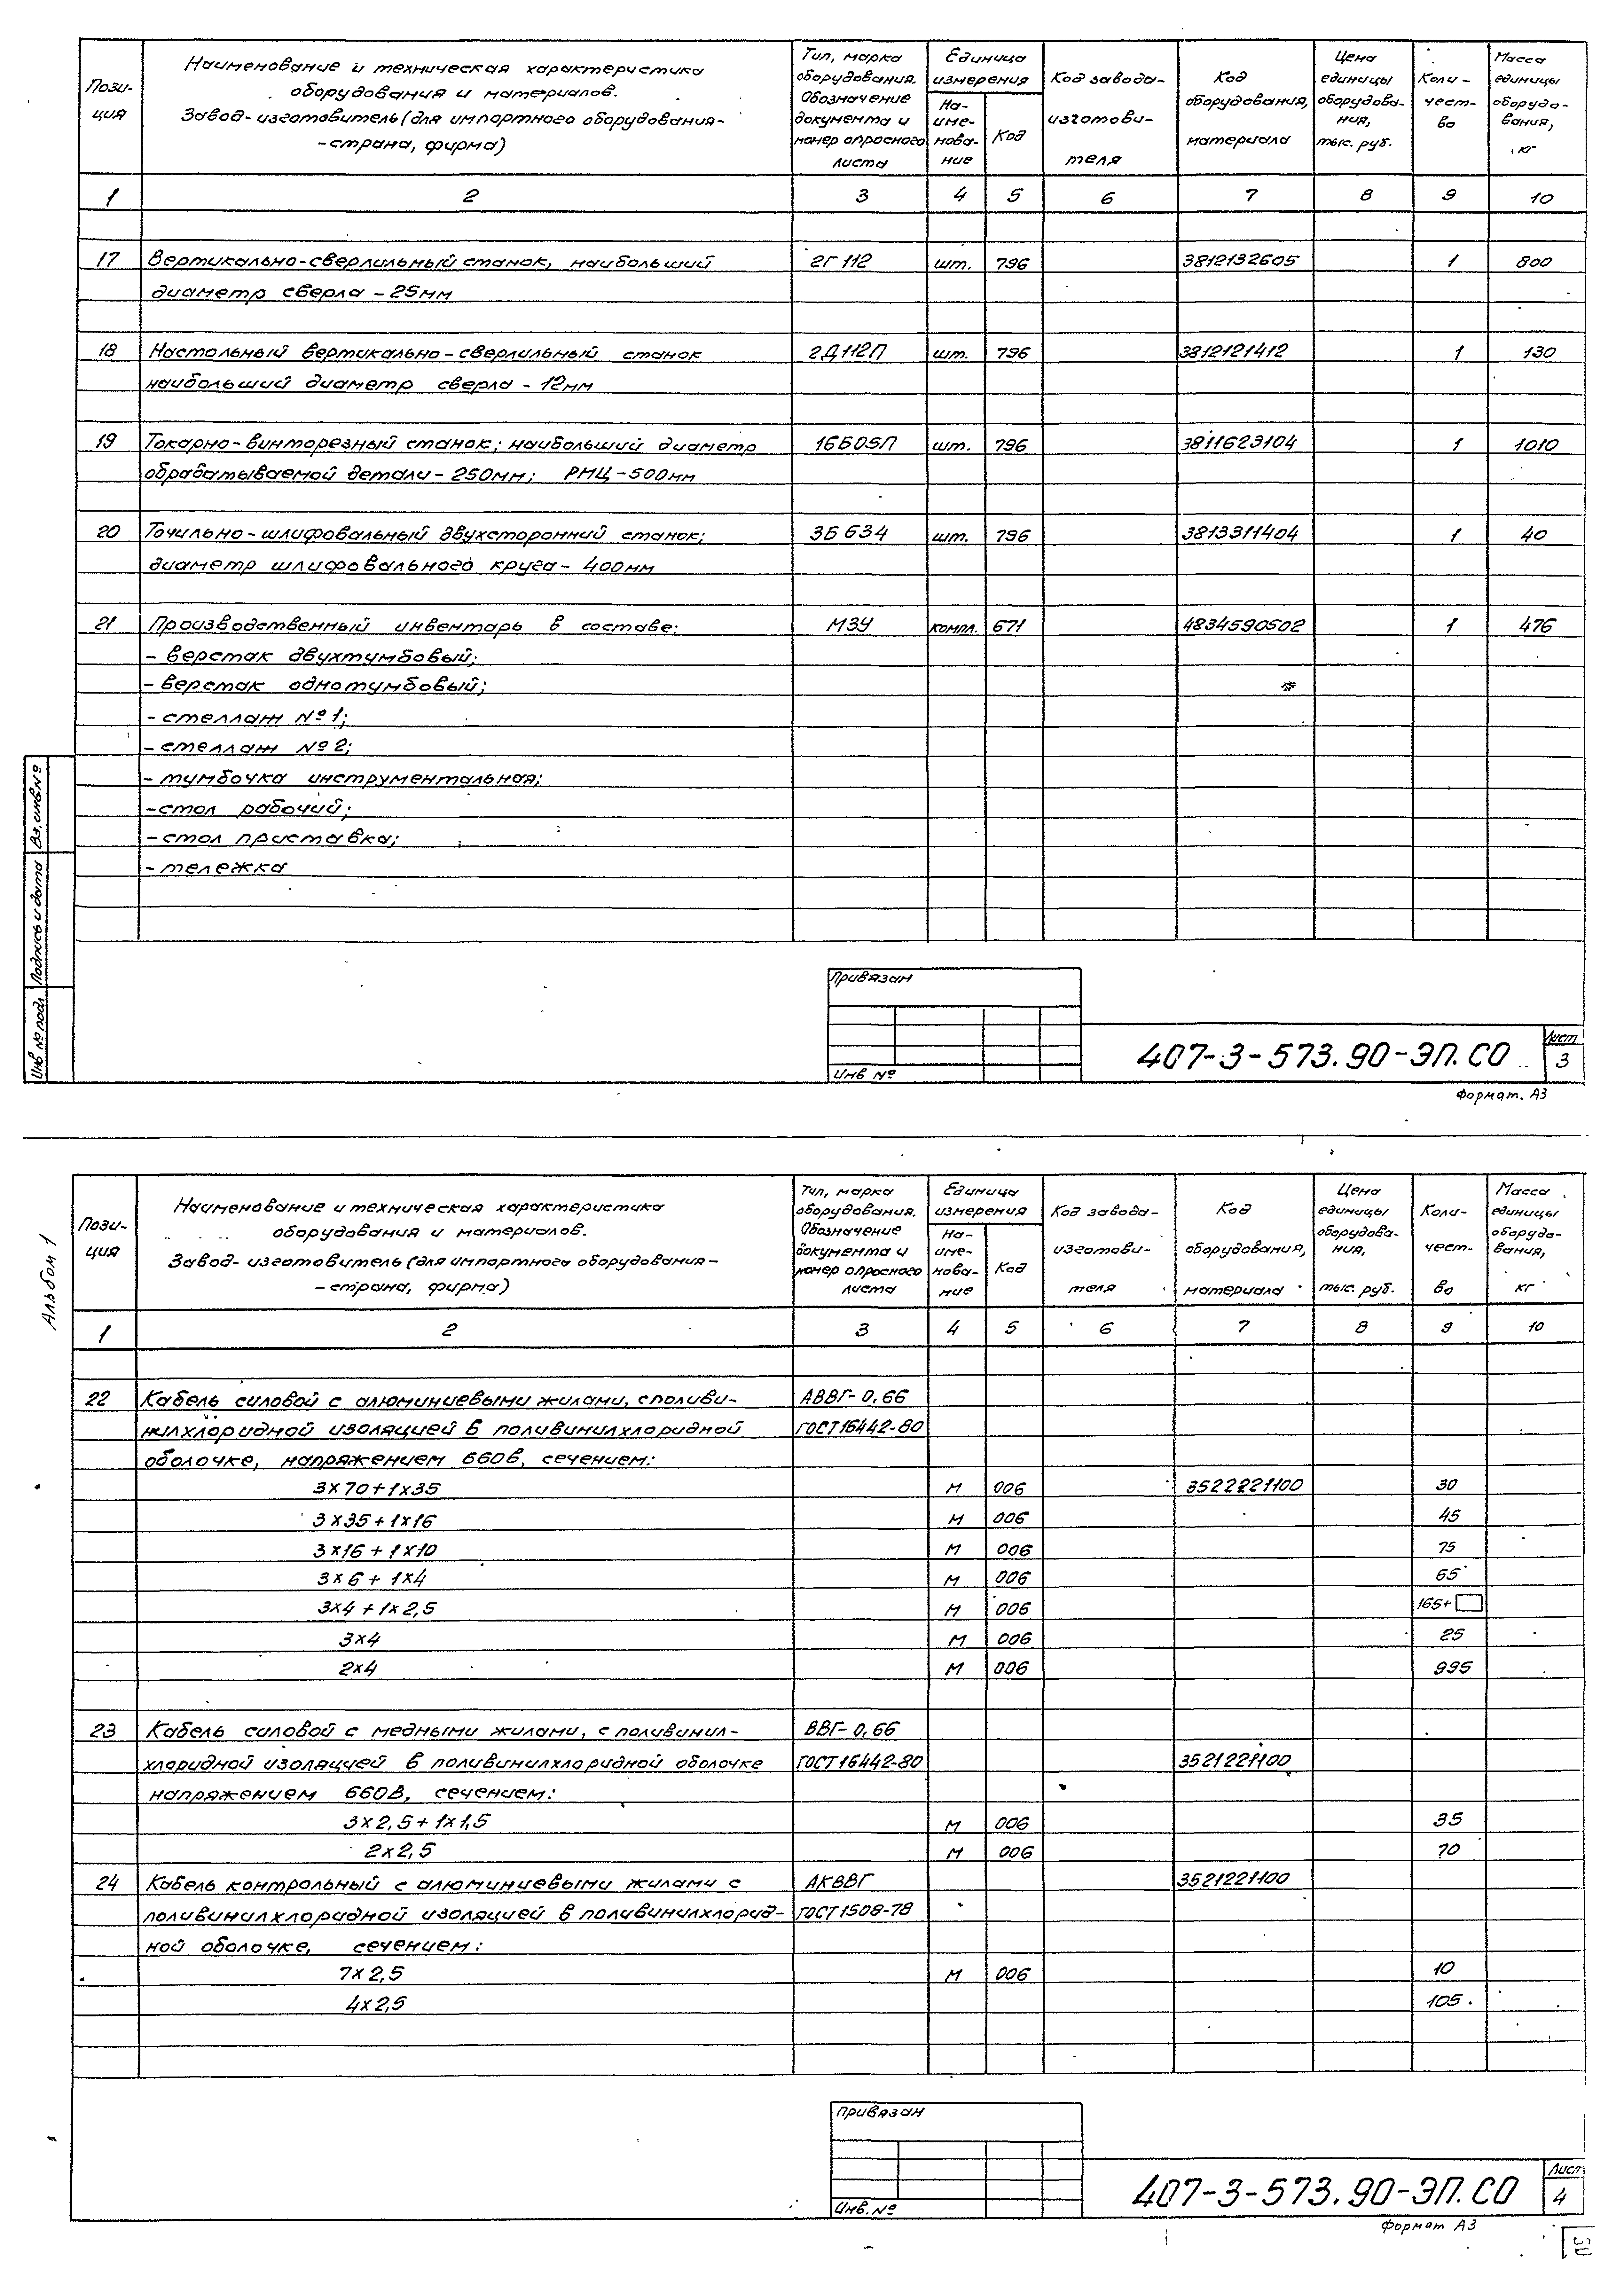 Пози-
ция
Наименование и техническая характеристика
оборудования и материалов.
Завод-изготовитель (для импортного оборудования-
-страна, фирма)
Тип, марка
оборудования.
Обозначение
документа и
номер опросного
листа
Единица
измерения
На-
име-
нова-
ние
Код
Код завода-
изготови-
теля
Код
оборудования,
материала
Цена
единицы
оборудова-
ния,
тыс. руб.
Коли-
чест-
во
Масса
единицы
оборудо-
вания,
1 2 3 4 5 6 7 8 9 10
17 Вертикально-сверлильный станок, наибольший 2Г112 шт. 796 3812132605 1 800
диаметр сверла - 25мм
18 Настольный вертикально-сверлильный станок 2Д112П шт. 796 3812121412 1 130
наибольший диаметр сверла - 12мм
19 Токарно-винторезный станок; наибольший диаметр 16Б05П шт. 796 3811623104 1 1010
обрабатываемой детали - 250мм; РМЦ-500мм
20 Точильно-шлифовальный двухсторонний станок; 3Б634 шт. 796 3813311404 1 40
диаметр шлифовального круга - 400мм
21 Производственный инвентарь в составе: МЗУ компл. 671 4834590502 1 476
- верстак двухтумбовый;
- верстак однотумбовый;
- стеллаж №1;
- стеллаж №2;
- тумбочка инструментальная;
- стол рабочий;
- стол приставка;
- тележка
Вз. инв.№
Подпись и дата
Инв № подл
Привязан
Инв №
407-3-573.90-ЭП.СО
Лист
3
Формат. А3
Альбом 1
Пози-
ция
Наименование и техническая характеристика
оборудования и материалов.
Завод-изготовитель (для импортного оборудования-
-страна, фирма)
Тип, марка
оборудования.
Обозначение
документа и
номер опросного
листа
Единица
измерения
На-
име-
нова-
ние
Код
Код завода-
изготови-
теля
Код
оборудования,
материала
Цена
единицы
оборудова-
ния,
тыс. руб.
Коли-
чест-
во
Масса
единицы
оборудо-
вания,
кг
1 2 3 4 5 6 7 8 9 10
22 Кабель силовой с алюминиевыми жилами, с поливи- АВВГ-0,66
нилхлоридной изоляцией в поливинилхлоридной ГОСТ16442-80
оболочке, напряжением 660в, сечением:
3х70+1х35 м 006 3522221100 30
3х35+1х16 м 006 45
3х16+1х10 м 006 75
3х6+1х4 м 006 65
3х4+1х2,5 м 006 165+
3х4 м 006 25
2х4 м 006 995
23 Кабель силовой с медными жилами, с поливинил- ВВГ-0,66
хлоридной изоляцией в поливинилхлоридной оболочке ГОСТ16442-80 3521221100
напряжением 660в, сечением:
3х2,5+1х1,5 м 006 35
2х2,5 м 006 70
24 Кабель контрольный с алюминиевыми жилами с АКВВГ 3521221100
поливинилхлоридной изоляцией в поливинилхлорид- ГОСТ1508-78
ной оболочке, сечением:
7х2,5 м 006 10
4х2,5 105
Привязан
Инв.№
407-3-573.90-ЭП.СО
Лист
4
Формат А3